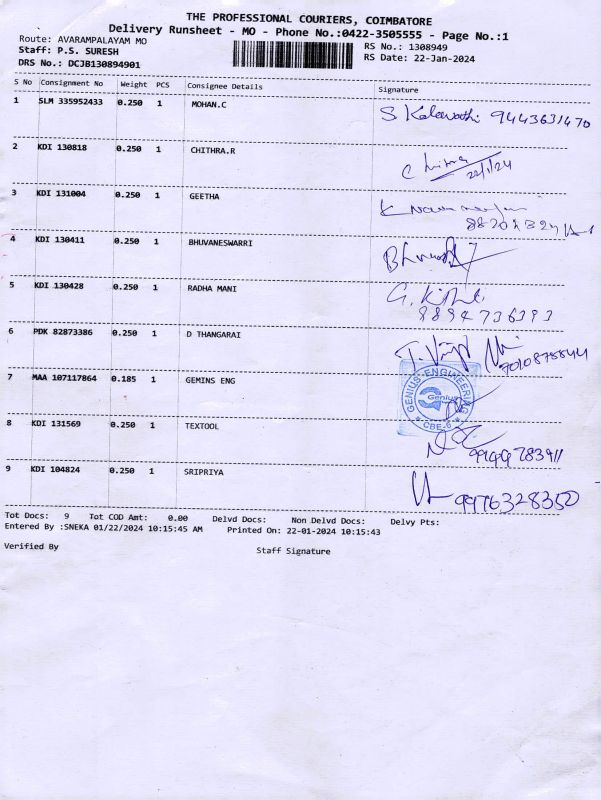 THE PROFESSIONAL COURIERS, COIMBATORE
Delivery Runsheet - MO - Phone No.:0422-3505555 - Page No.:1
Route: AVARAMPALAYAM MO
RS No.: 1308949
Staff: P.S. SURESH
RS Date: 22-Jan-2024
DRS No.: DCJB130894901
S No Consignment No Weight PCS Consignee Details Signature
1 SLM 335952433 0.250 1 MOHAN.C
S Kalavathi 9443631470
2 KDI 130818 0.250 1 CHITHRA.R
Chithra 22/1/24
3 KDI 131004 0.250 1 GEETHA
4 KDI 130411 0.250 1 BHUVANESWARRI
5 KDI 130428 0.250 1 RADHA MANI
8894736393
6 PDK 82873386 0.250 1 D THANGARAI
7 MAA 107117864 0.185 1 GEMINS ENG
GENIUS ENGINEERING
Genius
CBE-6
8 KDI 131569 0.250 1 TEXTOOL
9 KDI 104824 0.250 1 SRIPRIYA
9976328350
Tot Docs: 9 Tot COD Amt: 0.00 Delvd Docs: Non Delvd Docs: Delvy Pts:
Entered By :SNEKA 01/22/2024 10:15:45 AM Printed On: 22-01-2024 10:15:43
Verified By Staff Signature